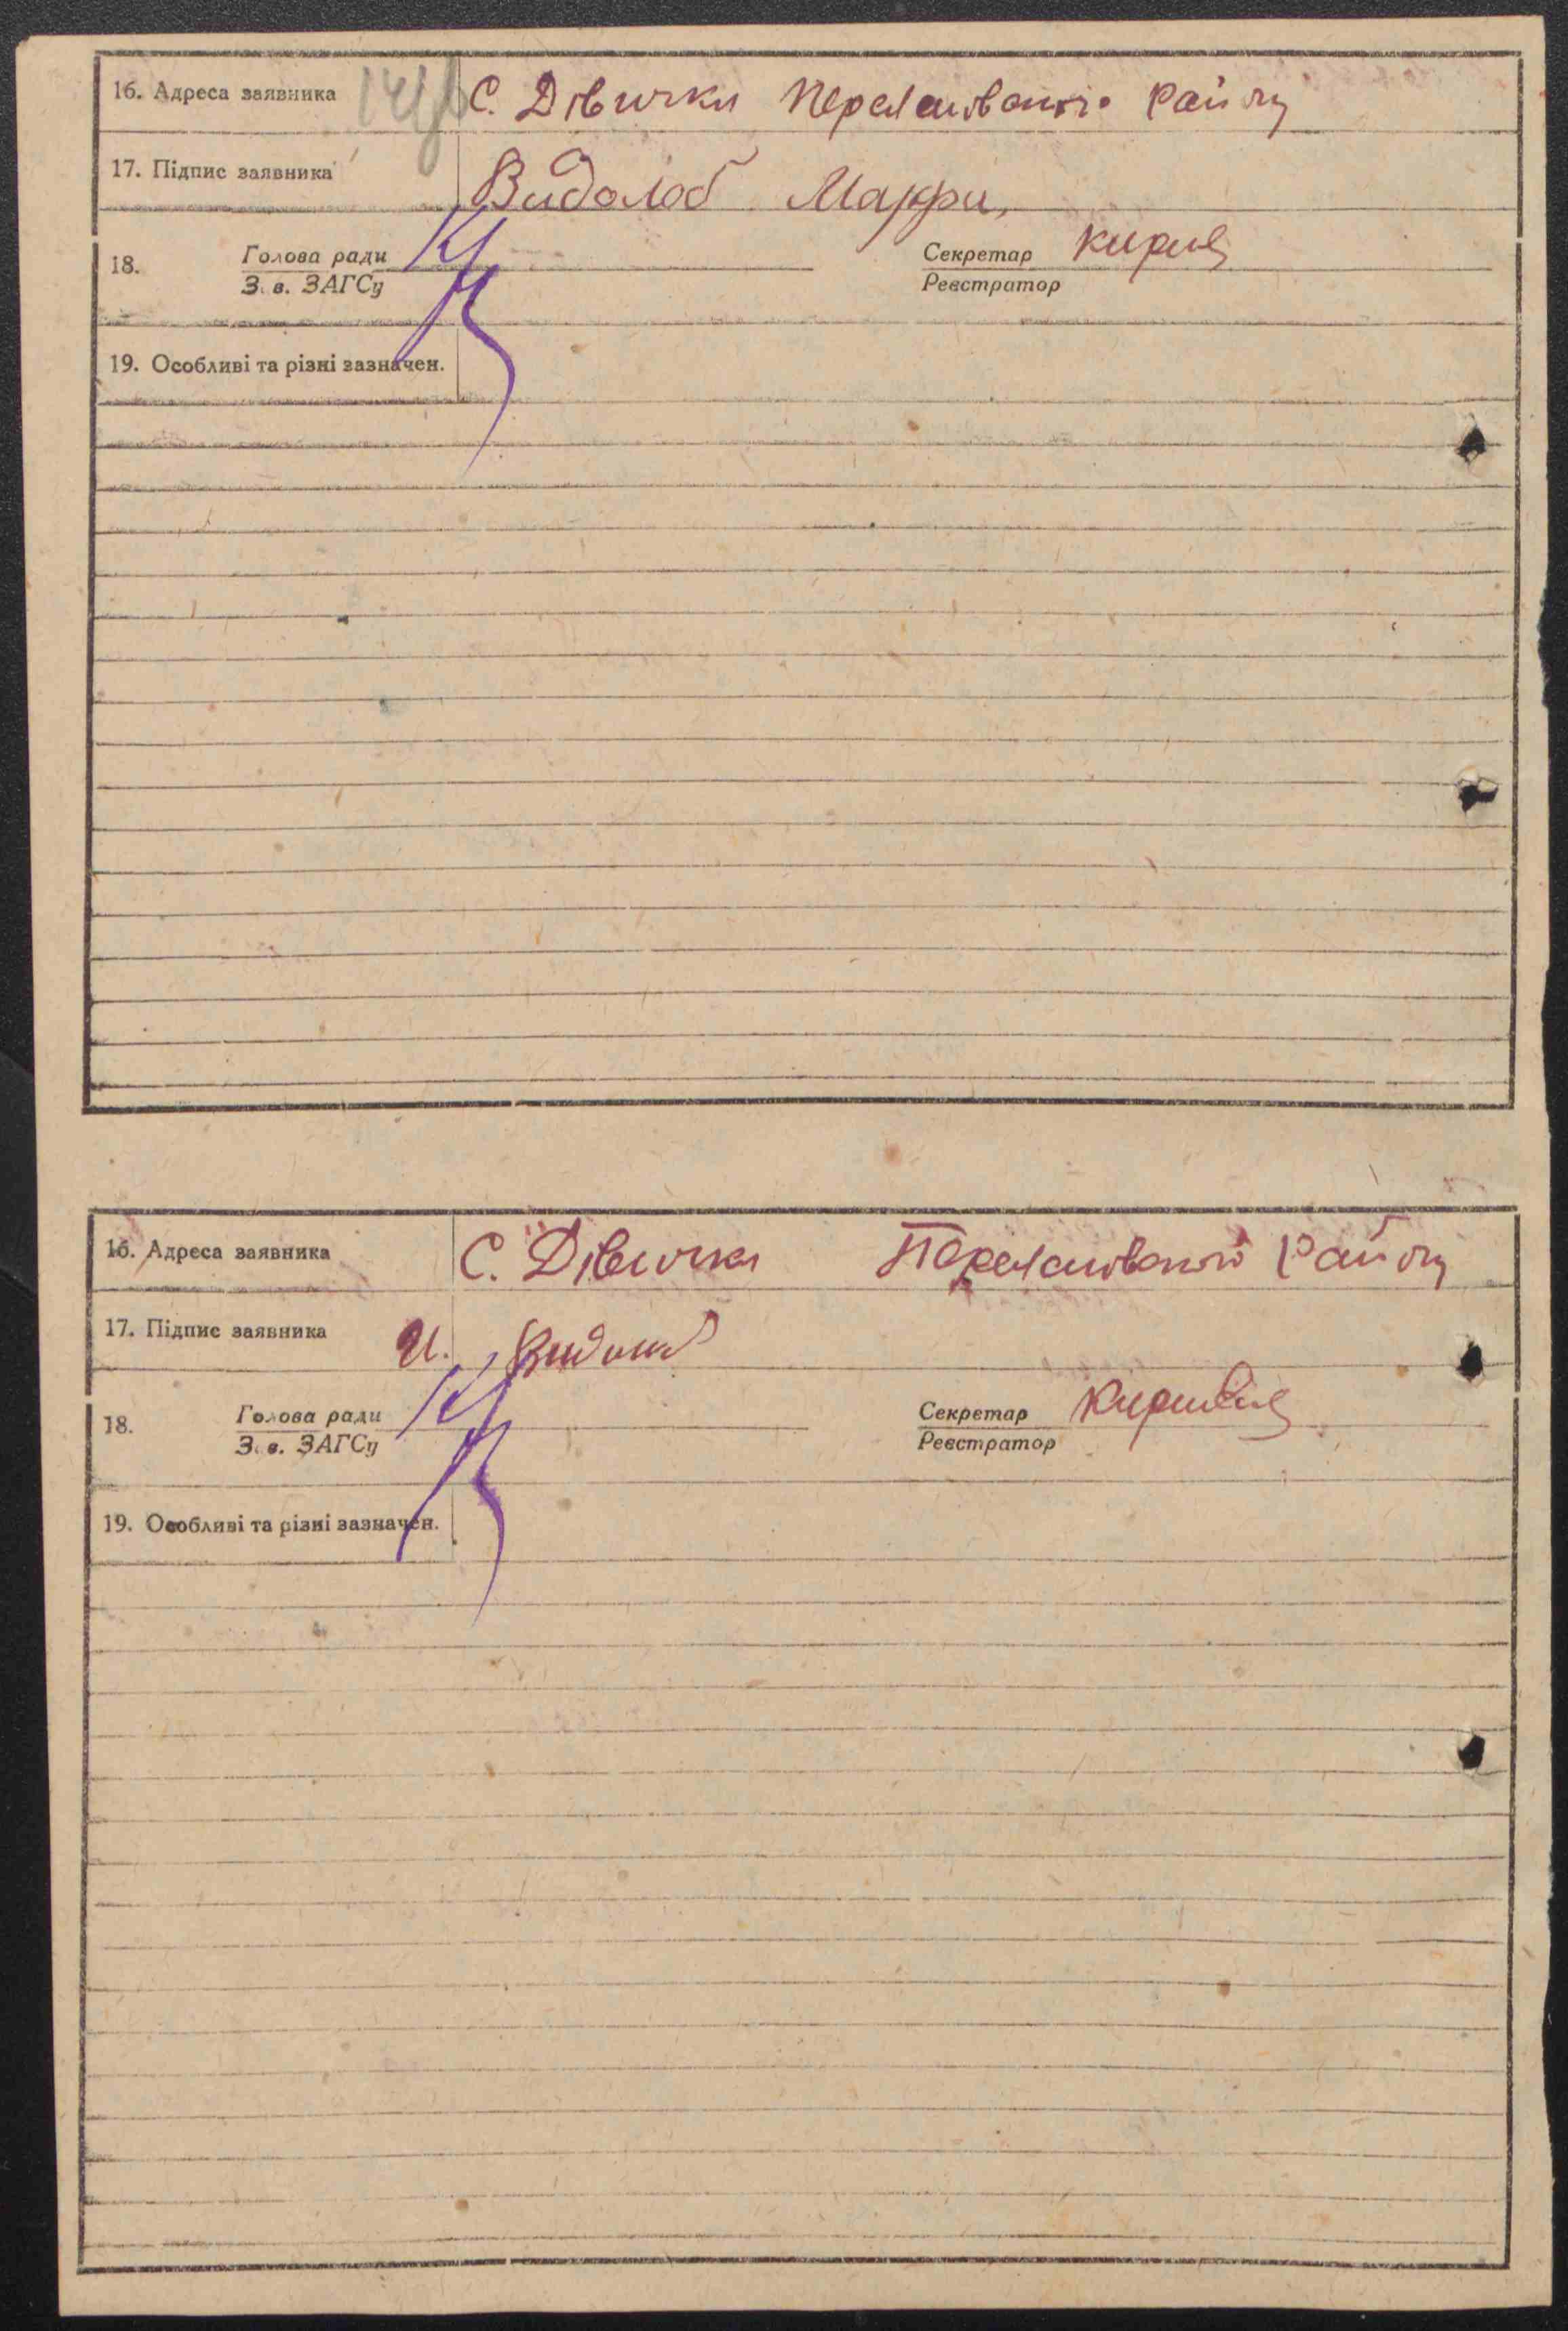 16. Адреса заявника С. Дівички Переяславського Району
17. Підпис заявника Видолоб
18. Голова ради Секретар
З. в. ЗАГСу Реєстратор
19. Особливі та різні зазначен.
16. Адреса заявника С. Дівички Переяславського Району
17. Підпис заявника
18. Голова ради Секретар
З. в. ЗАГСу Реєстратор
19. Особливі та різні зазначен.